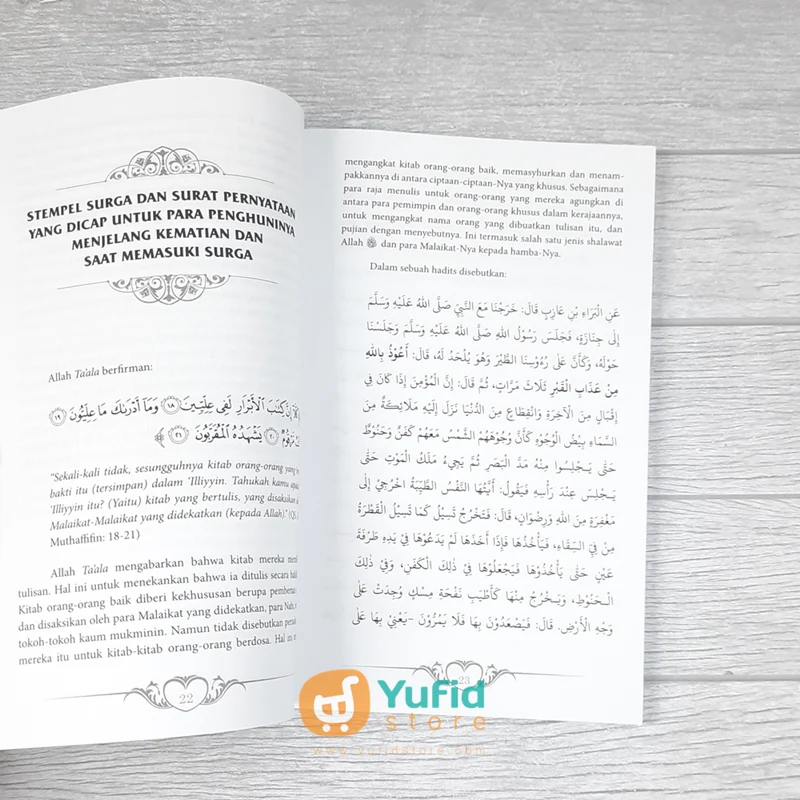 STEMPEL SURGA DAN SURAT PERNYATAAN
YANG DICAP UNTUK PARA PENGHUNINYA
MENJELANG KEMATIAN DAN
SAAT MEMASUKI SURGA
Allah Ta'ala berfirman:
إِنَّ كِتَٰبَ ٱلْأَبْرَارِ لَفِى عِلِّيِّينَ ١٨ وَمَآ أَدْرَىٰكَ مَا عِلِّيُّونَ ١٩
مَّرْقُومٌ ٢٠ يَشْهَدُهُ ٱلْمُقَرَّبُونَ ٢١
"Sekali-kali tidak, sesungguhnya kitab orang-orang yang
bakti itu (tersimpan) dalam 'Illiyyin. Tahukah kamu apa
'Illiyyin itu? (Yaitu) kitab yang bertulis, yang disaksikan
Malaikat-Malaikat yang didekatkan (kepada Allah)." (QS.
Muthaffifin: 18-21)
Allah Ta'ala mengabarkan bahwa kitab mereka
tulisan. Hal ini untuk menekankan bahwa ia ditulis secara
Kitab orang-orang baik diberi kekhususan berupa
dan disaksikan oleh para Malaikat yang didekatkan, para
tokoh-tokoh kaum mukminin. Namun tidak disebutkan
mereka itu untuk kitab-kitab orang-orang berdosa. Hal ini
22
mengangkat kitab orang-orang baik, memasyhurkan dan menam-
pakkannya di antara ciptaan-ciptaan-Nya yang khusus. Sebagaimana
para raja menulis untuk orang-orang yang mereka agungkan di
antara para pemimpin dan orang-orang khusus dalam kerajaannya,
untuk mengangkat nama orang yang dibuatkan tulisan itu, dan
pujian dengan menyebutnya. Ini termasuk salah satu jenis shalawat
Allah ﷻ dan para Malaikat-Nya kepada hamba-Nya.
Dalam sebuah hadits disebutkan:
عَنِ الْبَرَاءِ بْنِ عَازِبٍ قَالَ: خَرَجْنَا مَعَ النَّبِيِّ صَلَّى اللهُ عَلَيْهِ وَسَلَّمَ
إِلَى جِنَازَةٍ، فَجَلَسَ رَسُوْلُ اللهِ صَلَّى اللهُ عَلَيْهِ وَسَلَّمَ وَجَلَسْنَا
حَوْلَهُ، وَكَأَنَّ عَلَى رُءُوْسِنَا الطَّيْرَ وَهُوَ يُلْحَدُ لَهُ، قَالَ: أَعُوْذُ بِاللهِ
مِنْ عَذَابِ الْقَبْرِ ثَلَاثَ مَرَّاتٍ، ثُمَّ قَالَ: إِنَّ الْمُؤْمِنَ إِذَا كَانَ فِي
إِقْبَالٍ مِنَ الْآخِرَةِ وَانْقِطَاعٍ مِنَ الدُّنْيَا نَزَلَ إِلَيْهِ مَلَائِكَةٌ مِنَ
السَّمَاءِ بِيْضُ الْوُجُوْهِ كَأَنَّ وُجُوْهَهُمُ الشَّمْسُ مَعَهُمْ كَفَنٌ وَحَنُوْطٌ
حَتَّى يَجْلِسُوا مِنْهُ مَدَّ الْبَصَرِ ثُمَّ يَجِيْءُ مَلَكُ الْمَوْتِ حَتَّى
يَجْلِسَ عِنْدَ رَأْسِهِ فَيَقُوْلُ: أَيَّتُهَا النَّفْسُ الطَّيِّبَةُ اخْرُجِيْ إِلَى
مَغْفِرَةٍ مِنَ اللهِ وَرِضْوَانٍ، قَالَ: فَتَخْرُجُ تَسِيْلُ كَمَا تَسِيْلُ الْقَطْرَةُ
مِنْ فِي السِّقَاءِ، فَيَأْخُذُهَا فَإِذَا أَخَذَهَا لَمْ يَدَعُوْهَا فِيْ يَدِهِ طَرْفَةَ
عَيْنٍ حَتَّى يَأْخُذُوْهَا فَيَجْعَلُوْهَا فِيْ ذٰلِكَ الْكَفَنِ، وَفِيْ ذٰلِكَ
الْحَنُوْطِ، وَيَخْرُجُ مِنْهَا كَأَطْيَبِ نَفْحَةِ مِسْكٍ وُجِدَتْ عَلَى
وَجْهِ الْأَرْضِ. قَالَ: فَيَصْعَدُوْنَ بِهَا فَلَا يَمُرُّوْنَ -يَعْنِيْ بِهَا عَلَى
23
Yufid
store
www.yufidstore.com